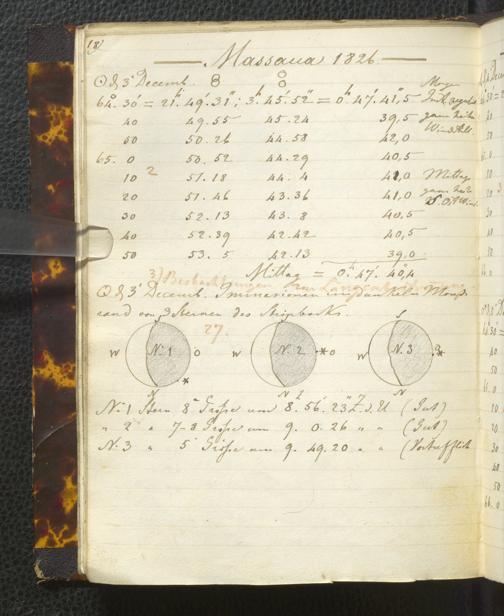 18)
Massaua 1826
☉ d 3t Decemb.
64° 30' = 21h 49' 31"; 3h 45' 52" = 0h 47' 41,5
40 49.55 45.24 39,5
50 50.26 44.58 42,0
65. 0 50.52 44.29 40,5
10 51.18 44.4 41,0 Mittag
20 51.46 43.36 41,0
30 52.13 43.8 40,5
40 52.39 42.42 40,5
50 53.5 42.13 39,0
Mittag = 0h 47' 40,4
3) Beobachtungen zur Längenbestimmung
d 3t Decemb. Immersionen im dunkeln Monds
rand von 3 Sternen des Steinbocks.
27.
S
W No 1 O W No 2 * O W No 3 *
* N N N
No 1 Stern 8t Größe um 8. 56' 23" Z. d. U (Gut)
" 2 " 7-8 Größe um 9. 0. 26 " " (Gut)
No. 3 " 5 Größe um 9. 49. 20 " " (Vortrefflich